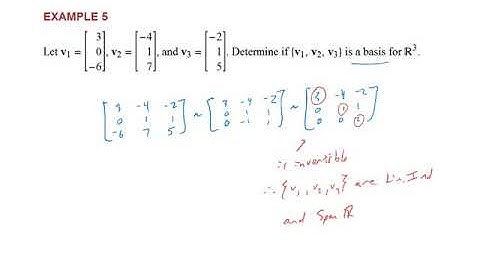 EXAMPLE 5
Let v₁ = [3 0 -6], v₂ = [-4 1 7], and v₃ = [-2 1 5]. Determine if {v₁, v₂, v₃} is a basis for ℝ³.
[3 -4 -2; 0 1 1; -6 7 5] ~ [3 -4 -2; 0 1 1; 0 -1 1] ~ [3 -4 -2; 0 1 1; 0 0 2]
is invertible
∴ {v₁, v₂, v₃} are Lin. Ind
and Span ℝ